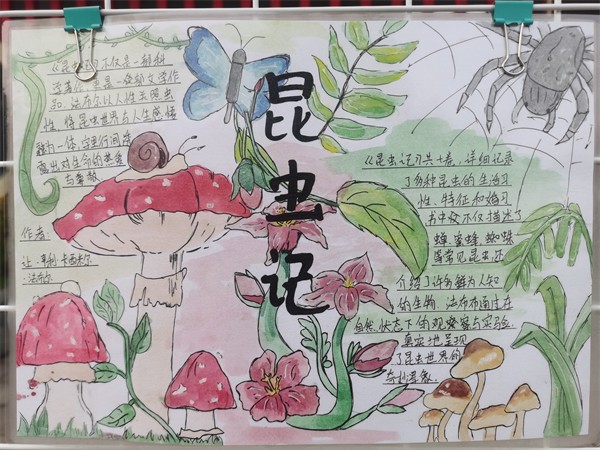 昆虫记
《昆虫记》不仅是一部科
学著作,更是一首动文学作
品,法布尔以人性关照虫
性,将昆虫世界与人生感悟
融为一体,字里行间流
露出对生命的热爱
与尊敬
作者:
让·亨利·卡西米尔
·法布尔
《昆虫记》共十卷,详细记录
了多种昆虫的生活习
性、特征和婚习
书中数不仅描述了
蝉、蜜蜂、蜘蛛
等常见昆虫,还
介绍了许多鲜为人知
的生物,法布尔通过在
自然状态下的观察与实验,
真实地呈现
了昆虫世界的
奇妙景象。